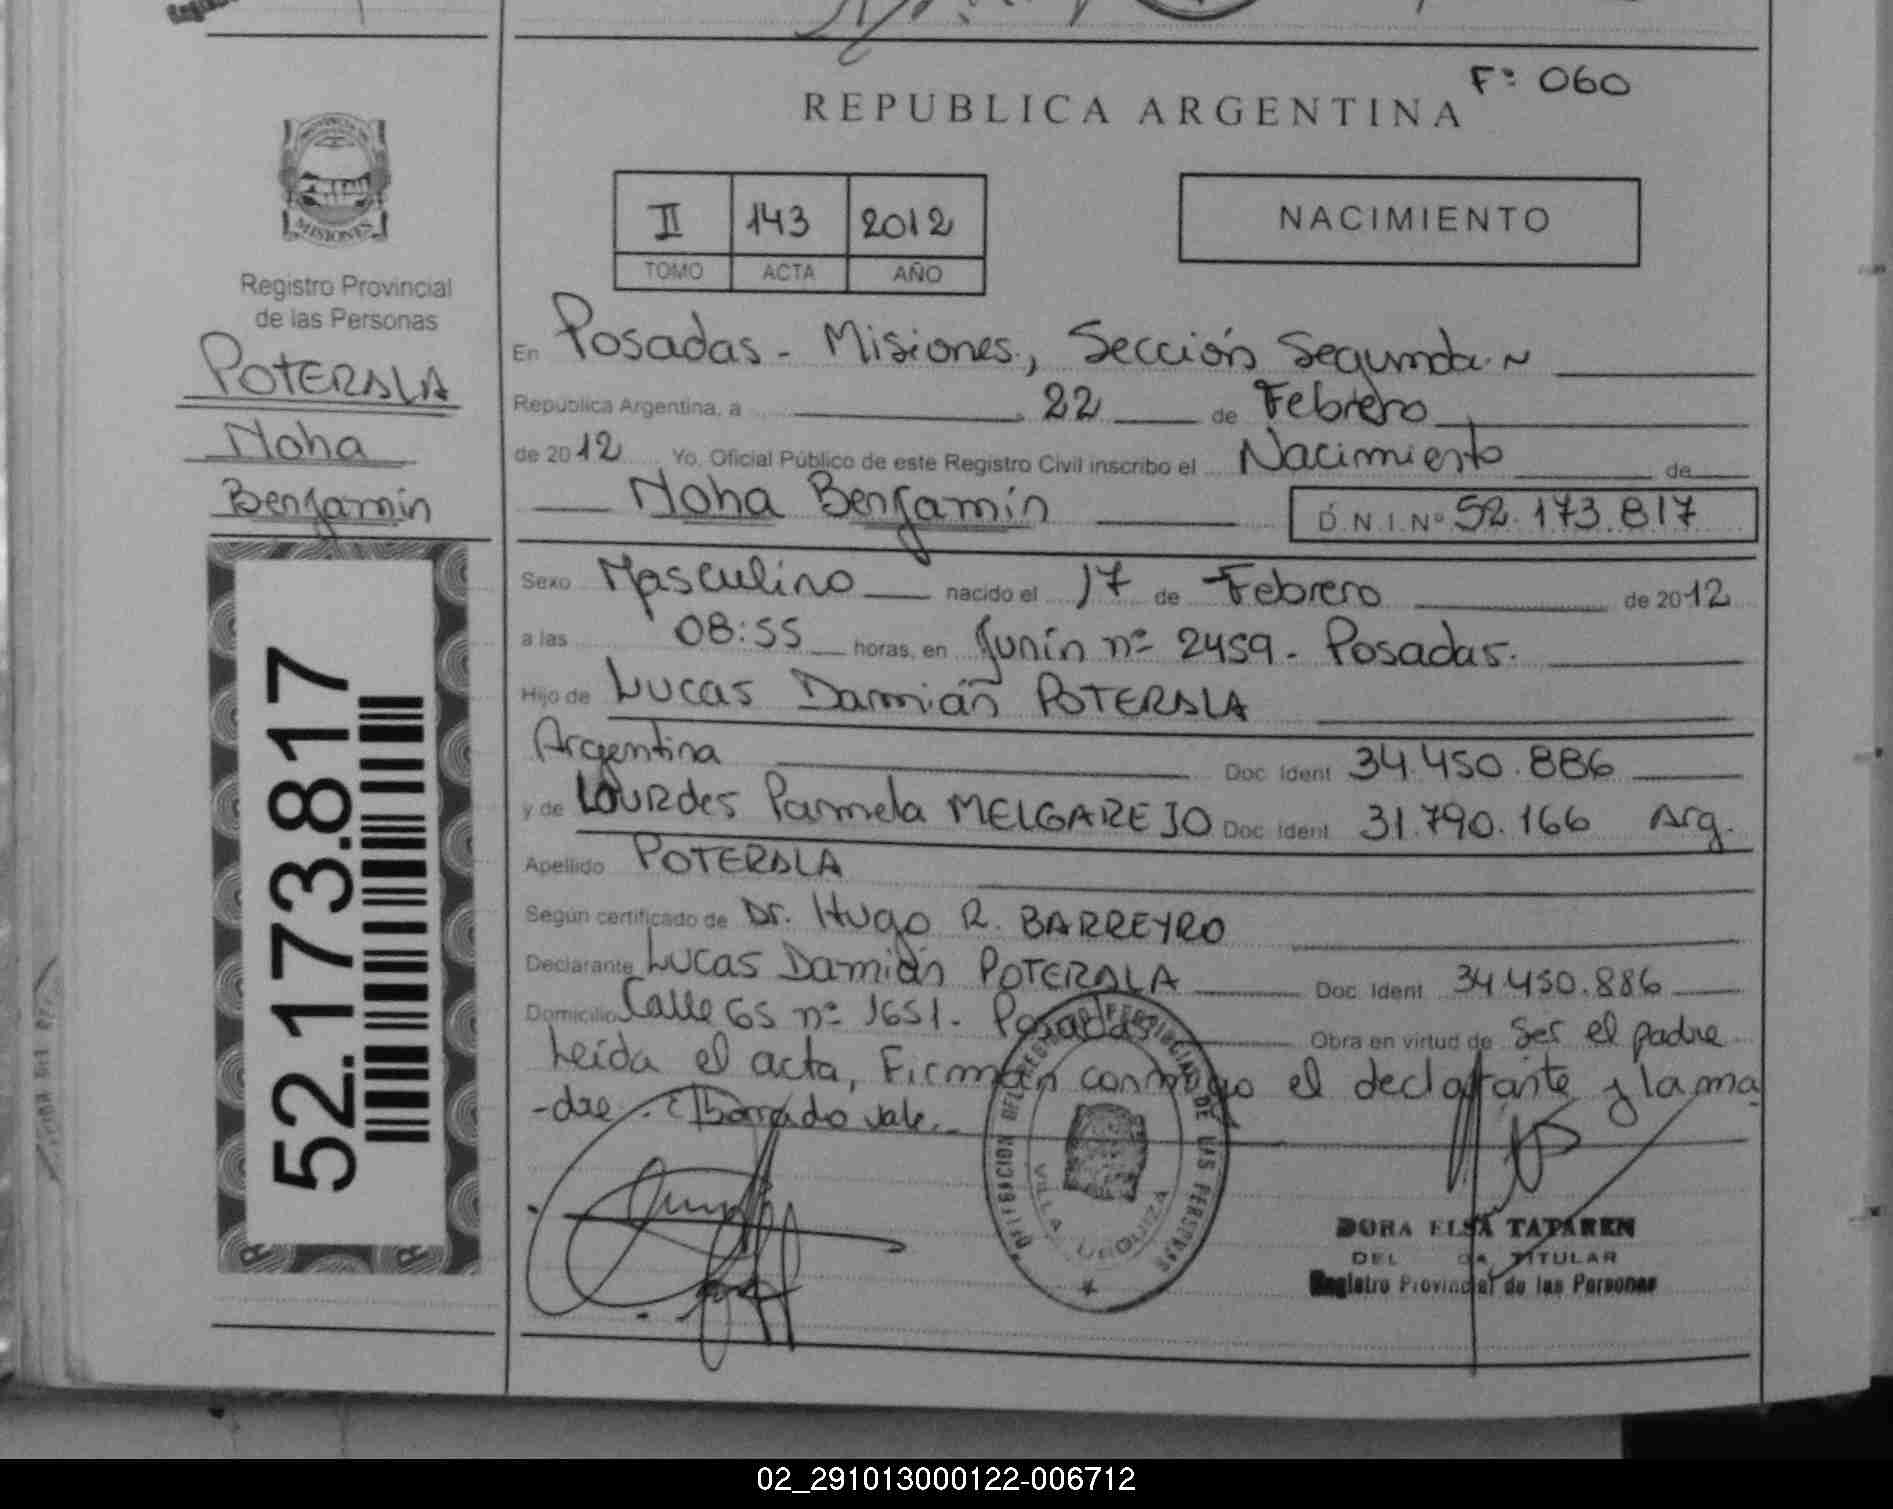 F° 060
REPUBLICA ARGENTINA
PROVINCIA DE
MISIONES
Registro Provincial
de las Personas
POTERALA
Noha
Benjamín
52.173.817
II 143 2012
TOMO ACTA AÑO
NACIMIENTO
En Posadas - Misiones, Sección Segunda
República Argentina, a 22 de Febrero
de 2012 Yo, Oficial Público de este Registro Civil inscribo el Nacimiento de
Noha Benjamín D.N.I. N° 52.173.817
Sexo Masculino nacido el 17 de Febrero de 2012
a las 08:55 horas, en Junín n° 2459. Posadas.
Hijo de Lucas Damián POTERALA
Argentina Doc. Ident. 34.450.886
y de Lourdes Pamela MELGAREJO Doc. Ident. 31.790.166 Arg.
Apellido POTERALA
Según certificado de Dr. Hugo R. BARREYRO
Declarante Lucas Damián POTERALA Doc. Ident. 34.450.886
Domicilio Calle 65 n° 1651. Posadas Obra en virtud de ser el padre
Leída el acta, Firman conmigo el declarante y la ma
-dre. Borrado vale.-
DELEGACION DEL REGISTRO PROVINCIAL DE LAS PERSONAS
VILLA URQUIZA
DORA ELSA TAPAREN
TITULAR
Registro Provincial de las Personas
02_291013000122-006712